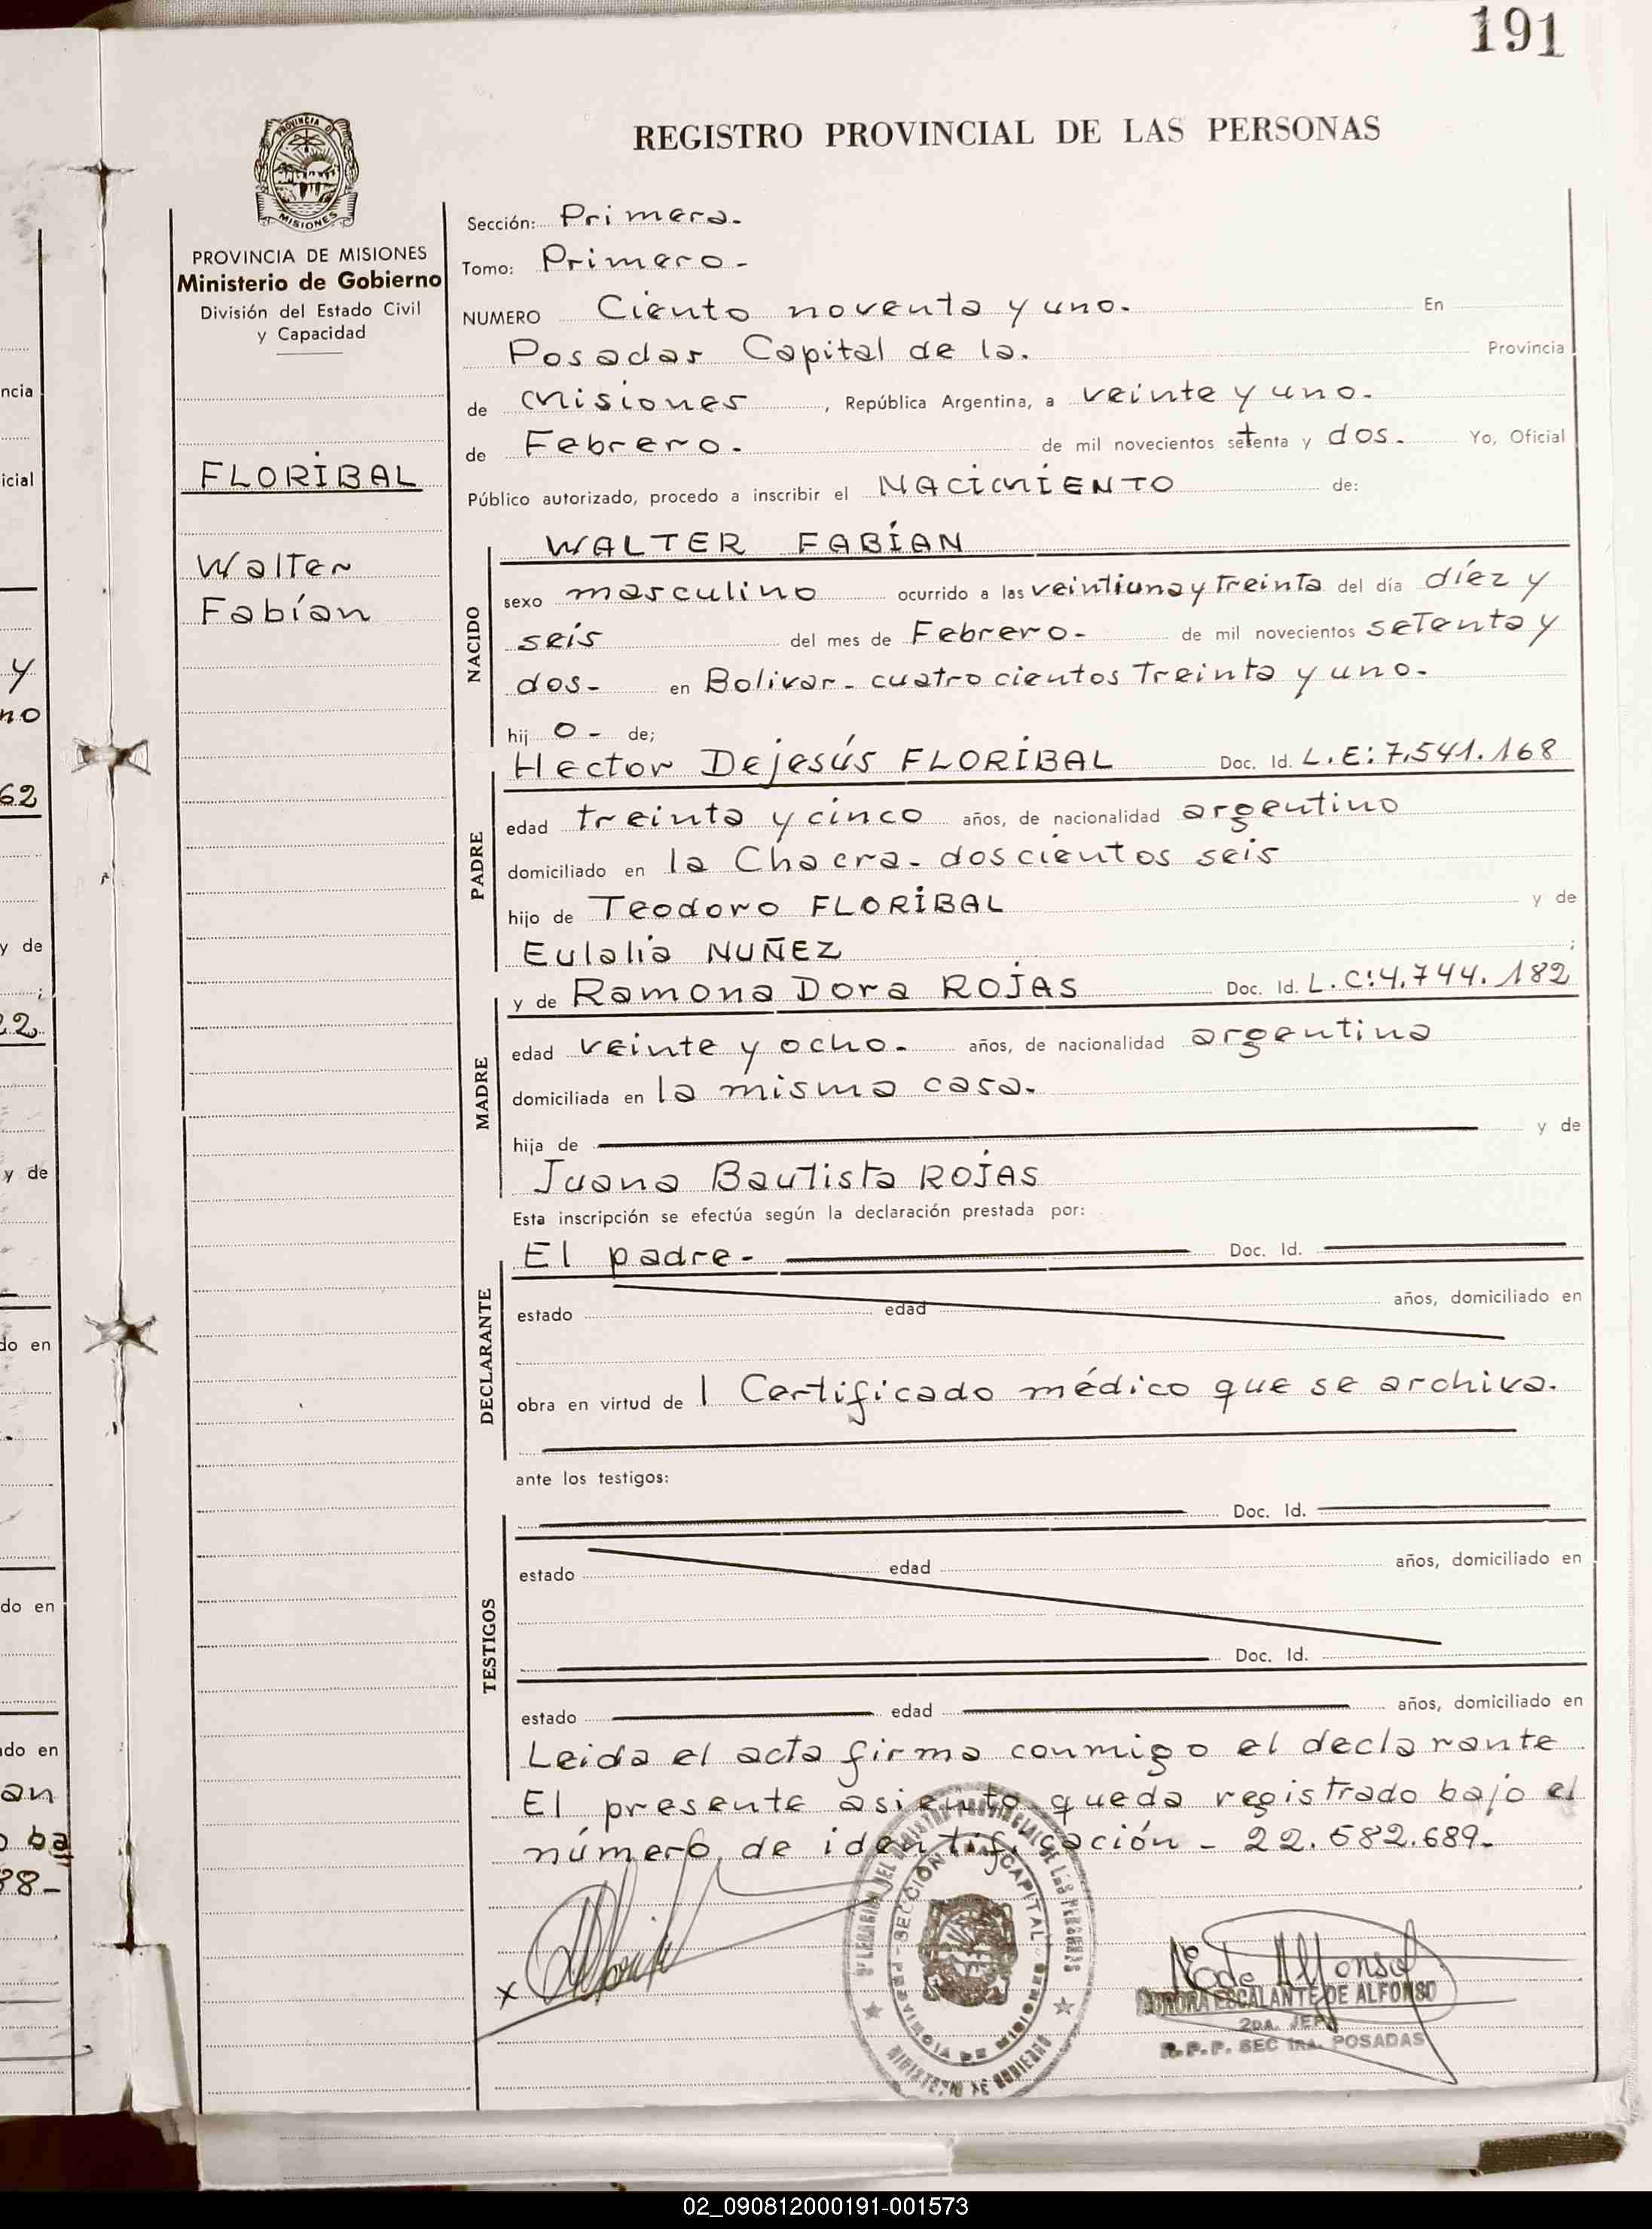 191
REGISTRO PROVINCIAL DE LAS PERSONAS
PROVINCIA DE
MISIONES
PROVINCIA DE MISIONES
Ministerio de Gobierno
División del Estado Civil
y Capacidad
FLORIBAL
Walter
Fabían
Sección: Primera.
Tomo: Primero-
NUMERO Ciento noventa y uno. En
Posadas Capital de la. Provincia
de Misiones, República Argentina, a veinte y uno.
de Febrero. de mil novecientos setenta y dos. Yo, Oficial
Público autorizado, procedo a inscribir el NACIMIENTO de:
NACIDO
WALTER FABÍAN
sexo masculino ocurrido a las veintiuna y treinta del día díez y
seis del mes de Febrero- de mil novecientos setenta y
dos- en Bolivar- cuatrocientos Treinta y uno.
hij o- de;
PADRE
Hector Dejesús FLORIBAL Doc. Id. L.E: 7.541.168
edad treinta y cinco años, de nacionalidad argentino
domiciliado en la Chacra- doscientos seis
hijo de Teodoro FLORIBAL y de
Eulalia NUÑEZ ;
MADRE
y de Ramona Dora ROJAS Doc. Id. L.C: 4.744.182
edad veinte y ocho- años, de nacionalidad argentina
domiciliada en la misma casa.
hija de y de
Juana Bautista ROJAS
Esta inscripción se efectúa según la declaración prestada por:
DECLARANTE
El padre- Doc. Id.
estado edad años, domiciliado en
obra en virtud de 1 Certificado médico que se archiva.
ante los testigos:
TESTIGOS
Doc. Id.
estado edad años, domiciliado en
Doc. Id.
estado edad años, domiciliado en
Leida el acta firma conmigo el declarante
El presente asiento queda registrado bajo el
número de identificación- 22.582.689-
x
SECCIÓN CAPITAL
PROVINCIA DE MISIONES
MINISTERIO DE GOBIERNO
N E de Alfonso
ESCALANTE DE ALFONSO
2DA. JEFA
R.P.P. SEC 1RA. POSADAS
ncia
icial
y
no
62
y de
;
22
y de
do en
do en
do en
an
ba
98-
02_090812000191-001573